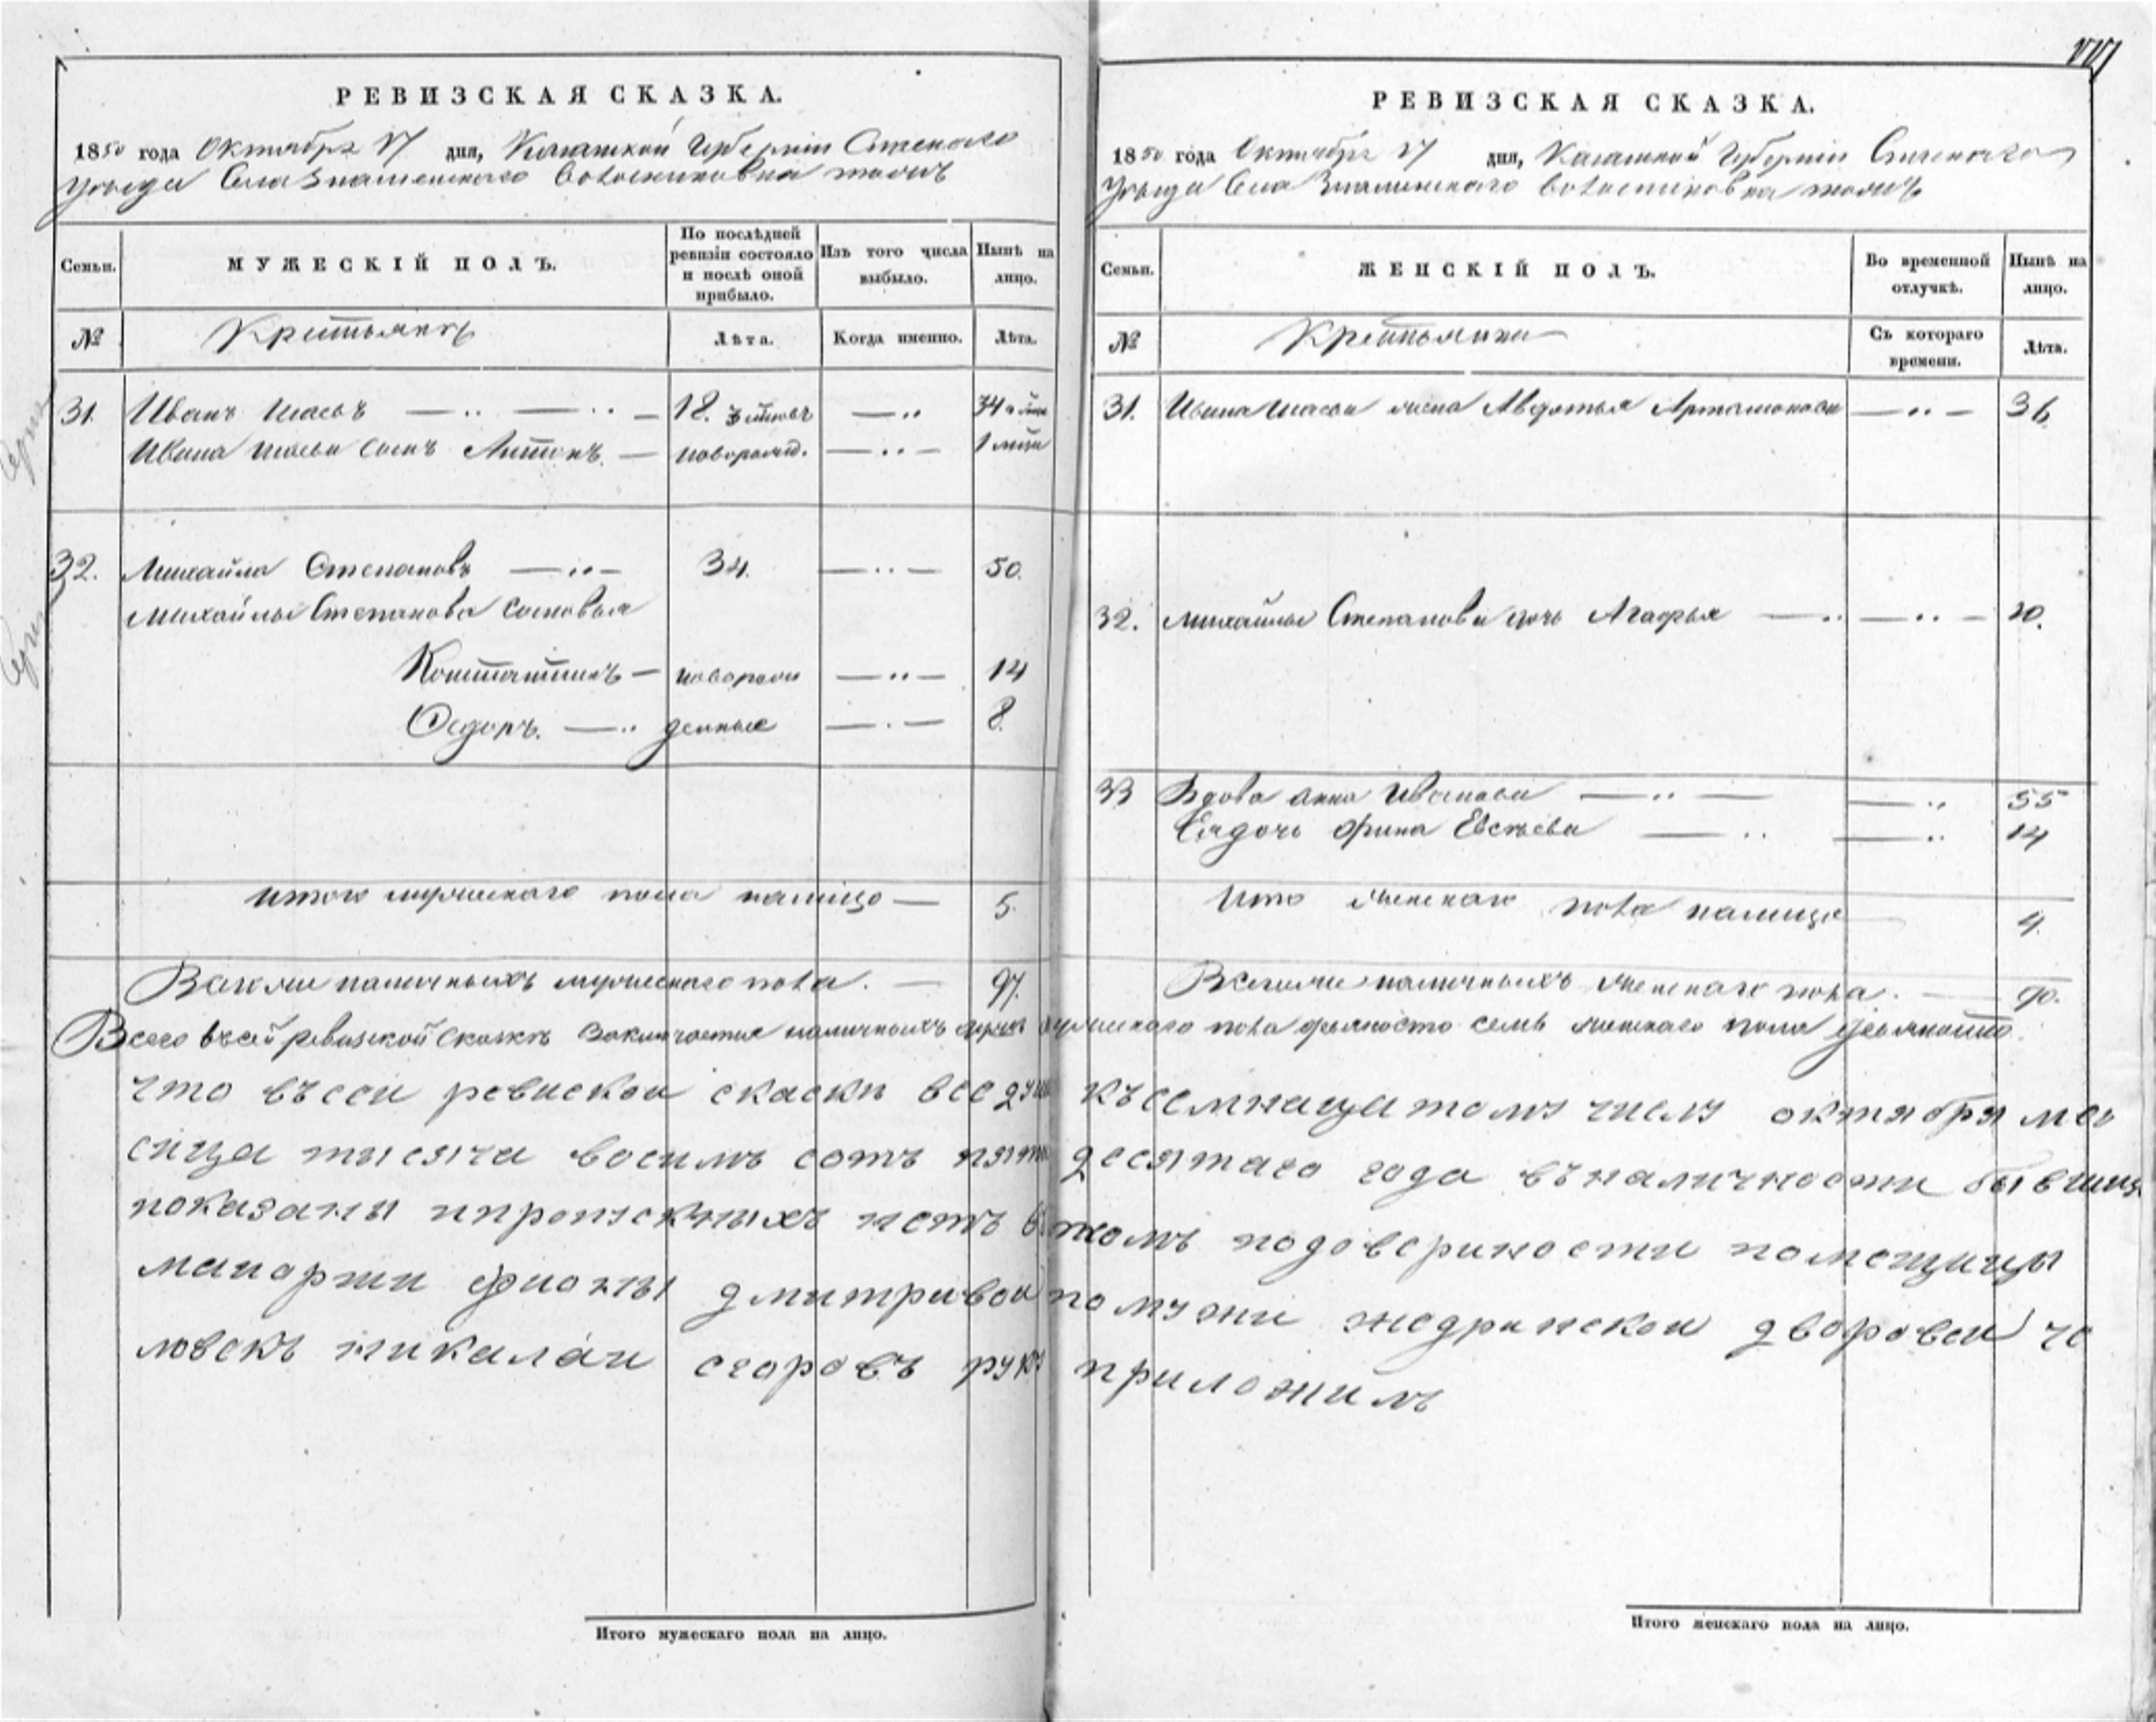 РЕВИЗСКАЯ СКАЗКА.
1850 года Октября 17 дня, Губерніи
уезда Села Знаменского
Семьи.
МУЖЕСКІЙ ПОЛЪ.
По послѣдней ревизіи состояло и послѣ оной прибыло.
Изъ того числа выбыло.
Нынѣ на лицо.
№
Крестьяне
Лѣта.
Когда именно.
Лѣта.
31. Иванъ 18. 34
Ивана сынъ Антонъ. новорожд.
32. Михайла Степановъ 34. 50.
Михайлы Степанова сыновья
Константинъ новорож 14
Федоръ. денные 8.
Итого мужескаго пола налицо 5.
наличныхъ мужескаго пола. 97.
РЕВИЗСКАЯ СКАЗКА.
1850 года Октября 17 дня, Губерніи
уезда Села Знаменского
Семьи.
ЖЕНСКІЙ ПОЛЪ.
Во временной отлучкѣ.
Нынѣ на лицо.
№
Крестьянки
Съ котораго времени.
Лѣта.
31. Ивана жена Авдотья Артамонова 36
32. Михайлы Степанова дочь Агафья 20.
33 Вдова Анна Иванова 55
Ея дочь Орина Евсѣева 14
женскаго пола налицо 4.
наличныхъ женскаго пола. 90.
Всего въ сей ревизской сказкѣ заключается наличныхъ мужескаго пола девяносто семь женскаго пола девяносто.
что въсеи ревискои скаски все къ семнацатому числу октября ме
сица тысяча восимъ сотъ пять десятаго года въналичности бывшия
показаны ипрописныхъ нетъ втомъ подовериности помещицы
маиорши фионы дмитривои помужи дворовеи че
ловекъ никалаи егоровъ руку приложилъ
Итого мужескаго пола на лицо.
Итого женскаго пола на лицо.